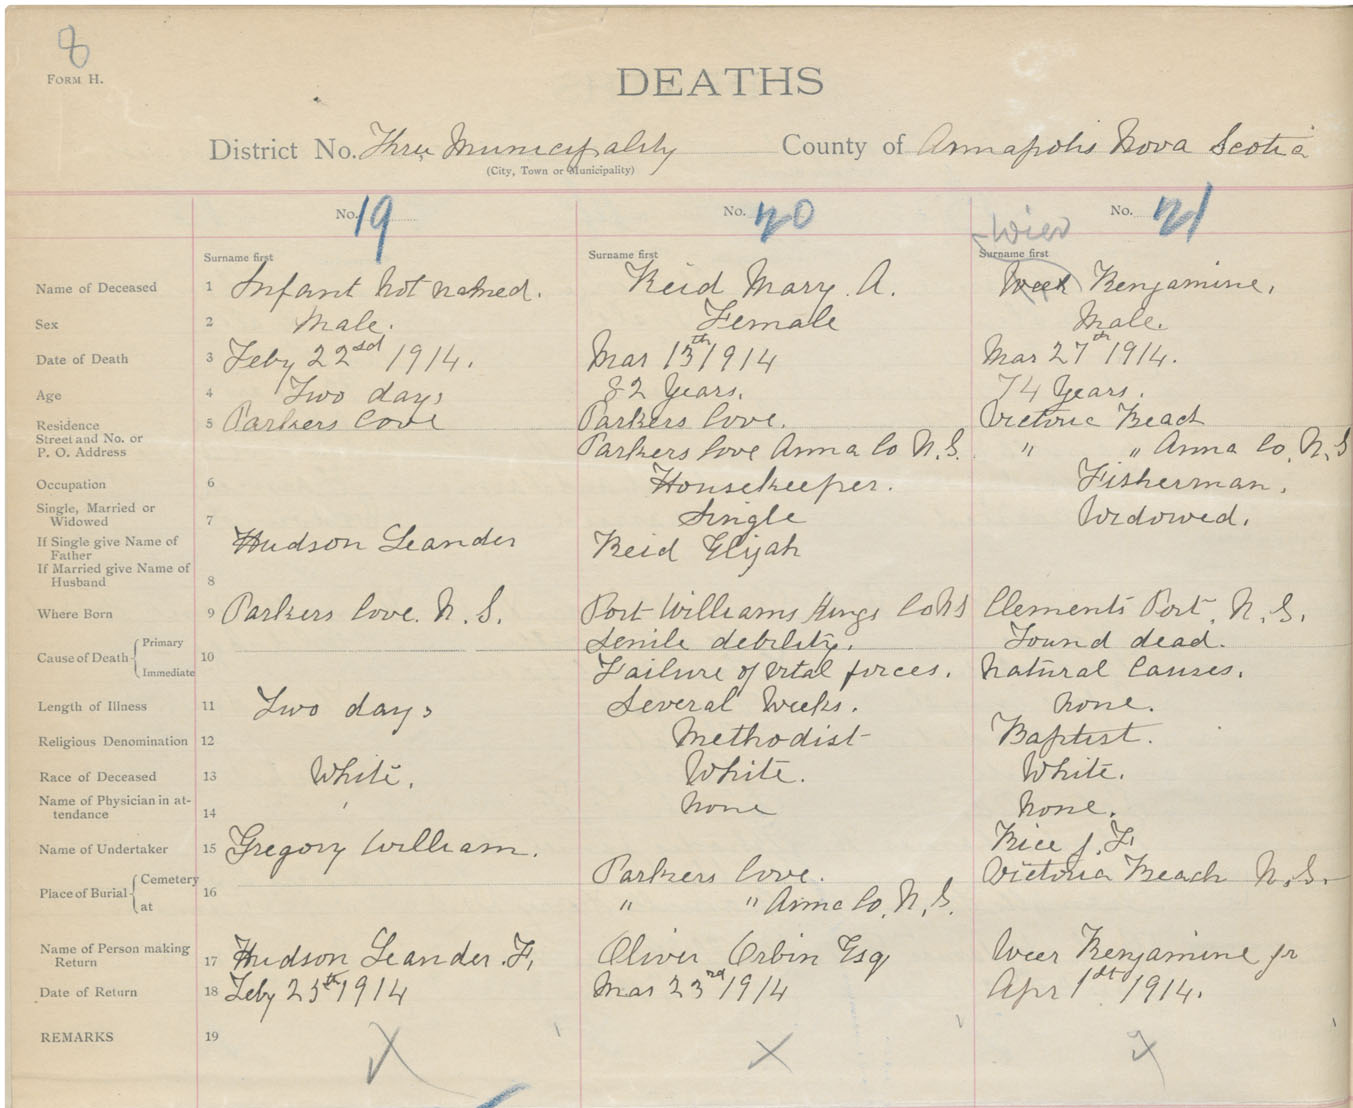 8
FORM H.
DEATHS
District No. Three Municipality County of Annapolis Nova Scotia
(City, Town or Municipality)
No. 19 No. 20 No. 21
Wier
Surname first Surname first Surname first
Name of Deceased 1 Infant Not named. Reid Mary. A. Weer Benjamine,
Sex 2 Male. Female Male.
Date of Death 3 Feby 22nd 1914. Mar 13th 1914 Mar 27th 1914.
Age 4 Two days 82 Years. 74 Years.
Residence 5 Parkers Cove Parkers Cove. Victoria Beach
Street and No. or
P. O. Address Parkers Cove Anna Co N.S. " " Anna Co. N.S
Occupation 6 Housekeeper. Fisherman,
Single, Married or
Widowed 7 Single Widowed.
If Single give Name of
Father Hudson Leander Reid Elijah
If Married give Name of
Husband 8
Where Born 9 Parkers Cove. N.S. Port Williams Kings Co NS Clements Port. N.S.
Cause of Death 10 Primary Senile debility. Found dead.
Immediate Failure of vital forces. Natural Causes.
Length of Illness 11 Two days Several Weeks. None.
Religious Denomination 12 Methodist Baptist.
Race of Deceased 13 White. White. White.
Name of Physician in at-
tendance 14 None None.
Name of Undertaker 15 Gregory William. Rice J. F.
Place of Burial 16 Cemetery Parkers Cove. Victoria Beach N.S.
at " " Anna Co. N.S.
Name of Person making
Return 17 Hudson Leander. F, Oliver Orbin Esq Weer Benjamine jr
Date of Return 18 Feby 25th 1914 Mar 23rd 1914 Apr 1st 1914.
REMARKS 19 X X X